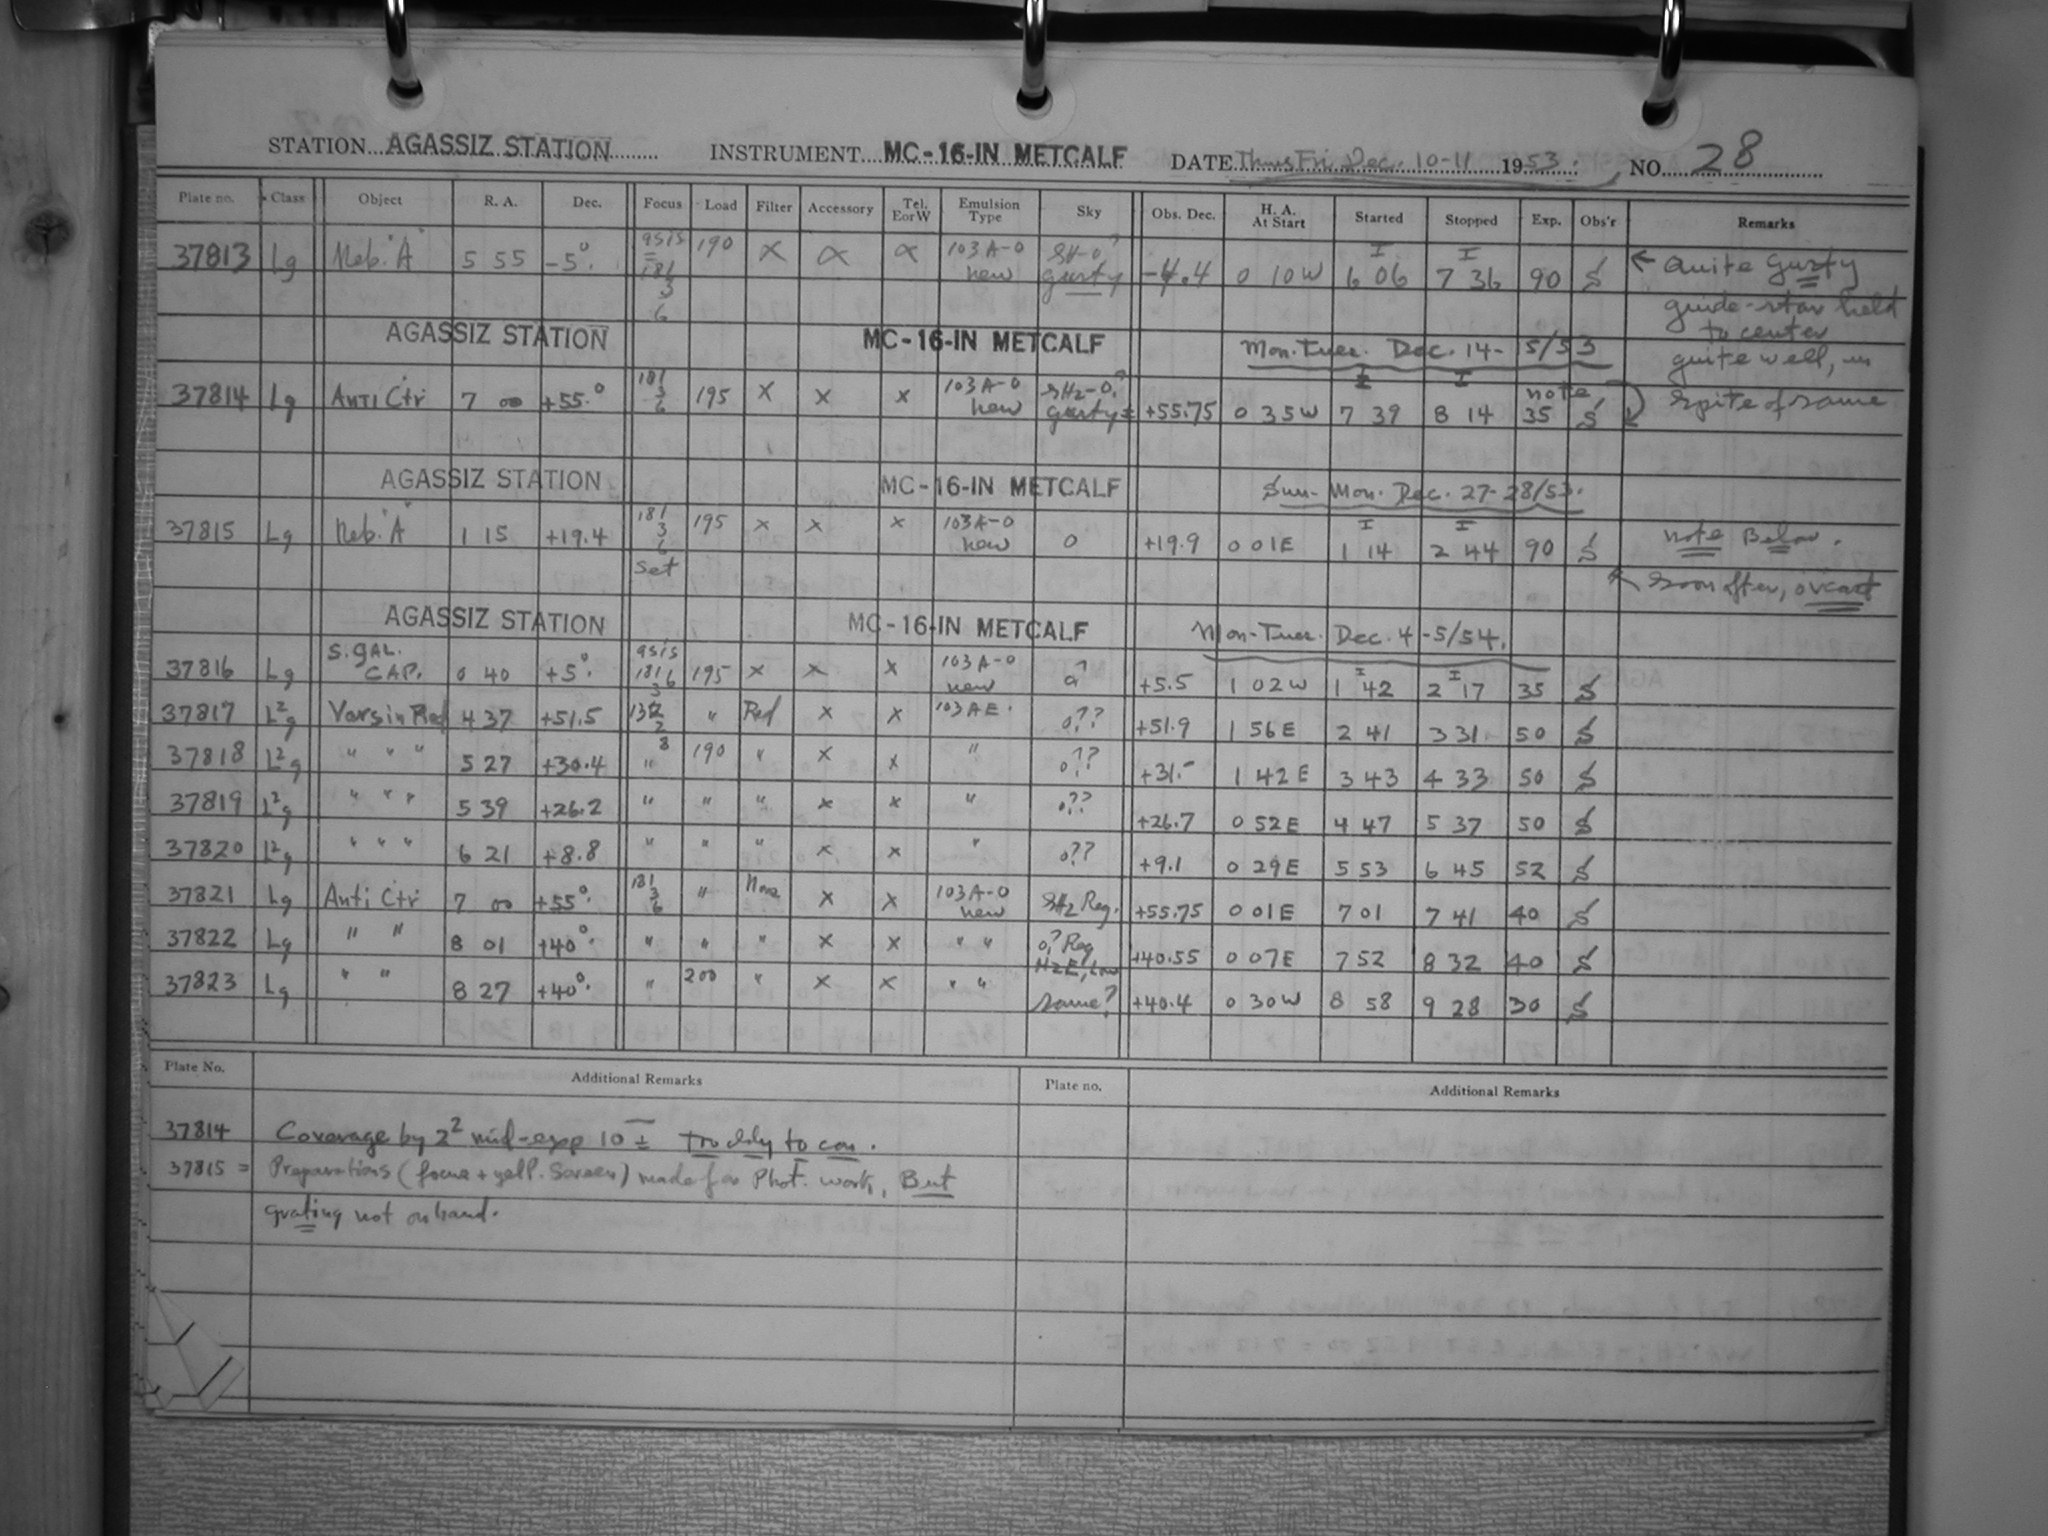 STATION AGASSIZ STATION INSTRUMENT MC-16-IN METCALF DATE Thurs Fri. Dec. 10-11 1953. NO. 28
Plate no. Class Object R. A. Dec. Focus Load Filter Accessory Tel. E or W Emulsion Type Sky Obs. Dec. H. A. At Start Started Stopped Exp. Obs'r Remarks
37813 Lg Neb. "A" 5 55 -5°. as is = 181 3 6 190 X X X 103A-O new gusty -4.4 0 10W I 6 06 I 7 36 90 S ← Quite Gusty
guide-star held
to center
AGASSIZ STATION MC-16-IN METCALF Mon. Tues. Dec. 14-15/53
quite well, in
37814 Lg Anti Ctr 7 00 +55.° 181 3 6 195 X X X 103A-O new SH2-0? gusty± +55.75 0 35W I 7 39 I 8 14 note 35 S spite of same
AGASSIZ STATION MC-16-IN METCALF Sun-Mon. Dec. 27-28/53.
37815 Lg Neb. "A" 1 15 +19.4 181 3 6 set 195 X X X 103A-O new 0 +19.9 0 01E I 1 14 I 2 44 90 S note Below.
soon after, o'cast
AGASSIZ STATION MC-16-IN METCALF Mon-Tues. Dec. 4-5/54.
37816 Lg S. GAL. CAP. 0 40 +5°. as is 181 3 6 195 X X X 103A-O new +5.5 1 02W I 1 42 I 2 17 35 S
37817 L²g Vars in Red 4 37 +51.5 2 " Red X X 103AE. 0?? +51.9 1 56E 2 41 3 31. 50 S
37818 L²g " " " 5 27 +30.4 " 190 " X X " 0?? +31.- 1 42E 3 43 4 33 50 S
37819 L²g " " " 5 39 +26.2 " " " X X " 0?? +26.7 0 52E 4 47 5 37 50 S
37820 L²g " " " 6 21 +8.8 " " " X X " 0?? +9.1 0 29E 5 53 6 45 52 S
37821 Lg Anti Ctr 7 00 +55°. 181 3 6 " None X X 103A-O new SH2 Reg. +55.75 0 01E 7 01 7 41 40 S
37822 Lg " " 8 01 +40°. " " " X X " " 0? Reg HzE, Low +40.55 0 07E 7 52 8 32 40 S
37823 Lg " " 8 27 +40°. " 200 " X X " " same? +40.4 0 30W 8 58 9 28 30 S
Plate No. Additional Remarks Plate no. Additional Remarks
37814 Coverage by 2² mid-exp 10 ±
37815 = Preparations (focus + yell. Screen) made for Phot. work, But
grating not on hand.